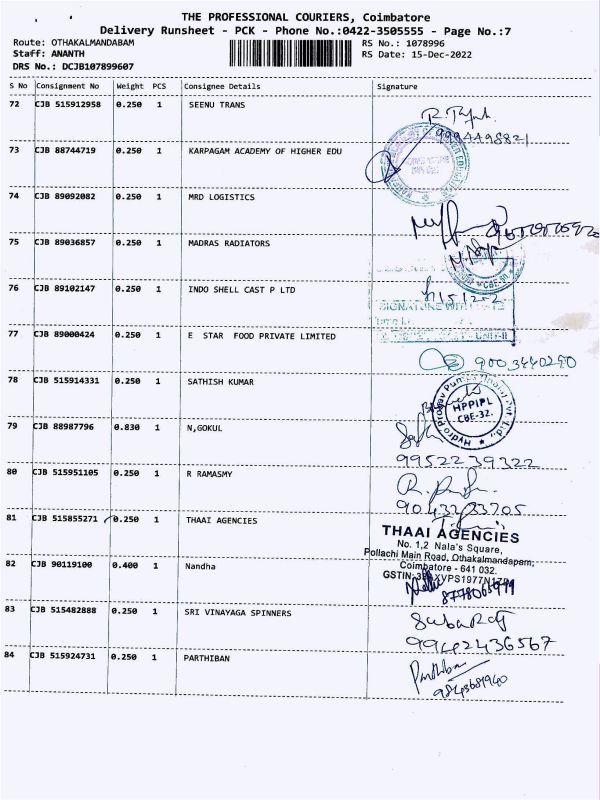 THE PROFESSIONAL COURIERS, Coimbatore
Delivery Runsheet - PCK - Phone No.:0422-3505555 - Page No.:7
Route: OTHAKALMANDABAM RS No.: 1078996
Staff: ANANTH RS Date: 15-Dec-2022
DRS No.: DCJB107899607
S No Consignment No Weight PCS Consignee Details Signature
72 CJB 515912958 0.250 1 SEENU TRANS
9994498821
73 CJB 88744719 0.250 1 KARPAGAM ACADEMY OF HIGHER EDU
74 CJB 89092082 0.250 1 MRD LOGISTICS
75 CJB 89036857 0.250 1 MADRAS RADIATORS
CBE
76 CJB 89102147 0.250 1 INDO SHELL CAST P LTD
SIGNATURE WITH
UNIT-II
77 CJB 89000424 0.250 1 E STAR FOOD PRIVATE LIMITED
9003440290
78 CJB 515914331 0.250 1 SATHISH KUMAR
HPPIPL
CBE-32.
79 CJB 88987796 0.830 1 N,GOKUL
9952239322
80 CJB 515951105 0.250 1 R RAMASMY
9043233705
81 CJB 515855271 0.250 1 THAAI AGENCIES
THAAI AGENCIES
No. 1,2 Nala's Square,
Pollachi Main Road, Othakalmandapam,
Coimbatore - 641 032.
82 CJB 90119100 0.400 1 Nandha
GSTIN:
83 CJB 515482888 0.250 1 SRI VINAYAGA SPINNERS
SubaRaj
9942436567
84 CJB 515924731 0.250 1 PARTHIBAN
Parthiban
9843681940